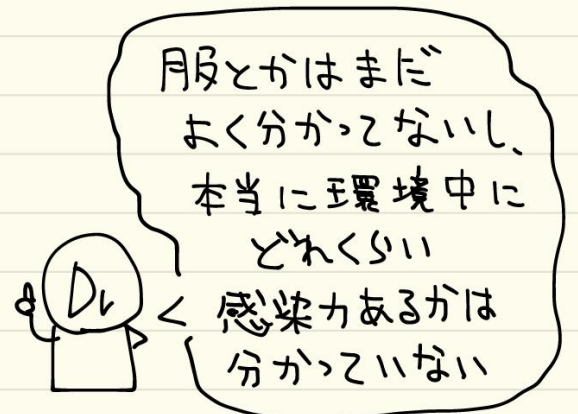 服とかはまだ
よく分かってないし、
本当に環境中に
どれくらい
感染力あるかは
分かっていない
Dr